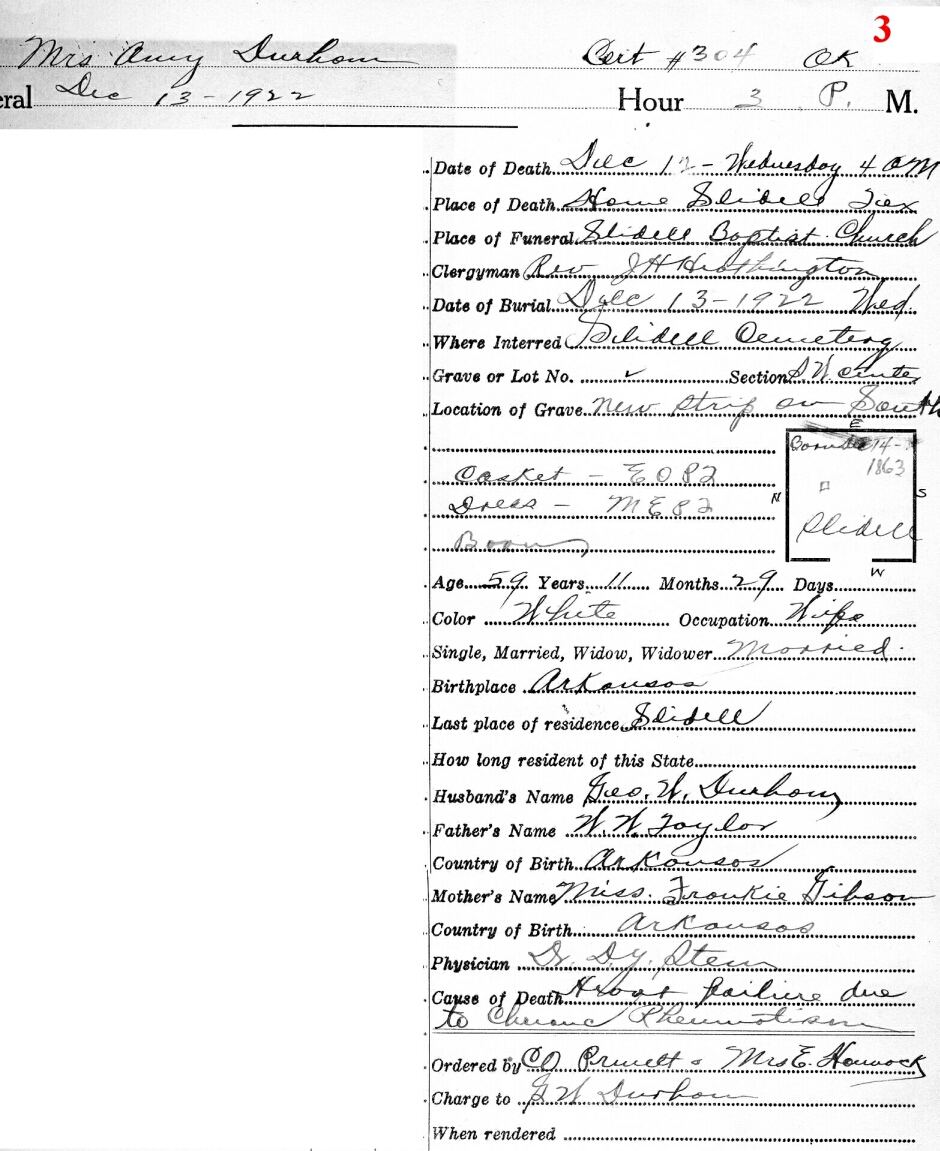 3
Mrs Amy Durham Cert #304 OK
eral Dec 13-1922 Hour 3 P. M.
Date of Death Dec 12 - Wednesday 4 am
Place of Death Home Slidell Tex
Place of Funeral Slidell Baptist Church
Clergyman Rev J H Heathington
Date of Burial Dec 13-1922 Wed
Where Interred Slidell Cemetery
Grave or Lot No. ✓ Section S W center
Location of Grave New strip on South
E
14-
1863
Casket - E082
N S
Dress - ME82
Slidell
W
Age 59 Years 11 Months 29 Days
Color White Occupation Wife
Single, Married, Widow, Widower Married.
Birthplace Arkansas
Last place of residence Slidell
How long resident of this State
Husband's Name Geo. W. Durham
Father's Name W. W. Taylor
Country of Birth Arkansas
Mother's Name Miss. Frankie Gibson
Country of Birth Arkansas
Physician Dr. D.Y. Stem
Cause of Death Heart failiere due
to Chronic Rheumatism
Ordered by CO Pruett & Mrs E.
Charge to G W Durham
When rendered